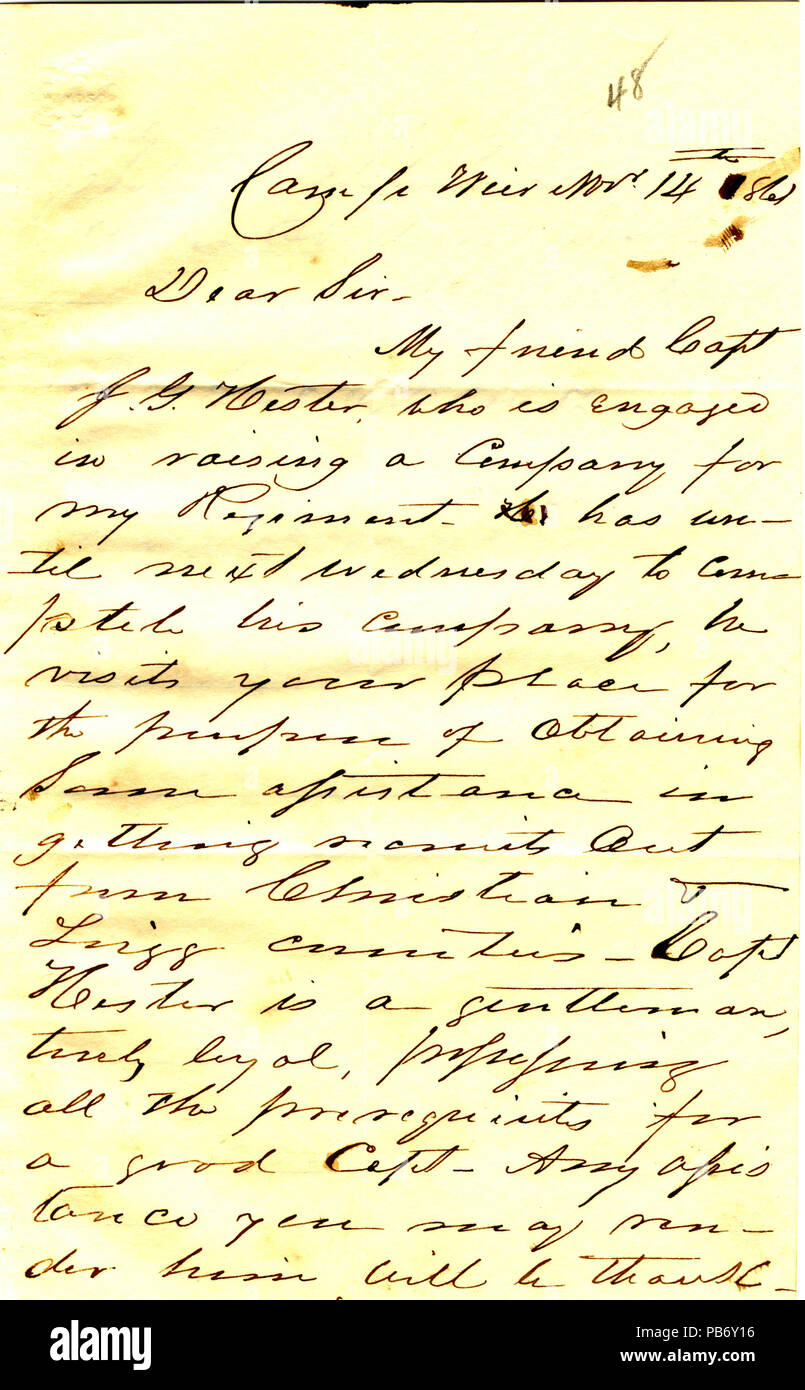 48
Camp Weir Novr 14th 1861
Dear Sir -
My friend Capt
J. G. Hester, who is engaged
in raising a Company for
my Regiment - has un-
til next wednesday to Com-
plete his company, he
visits your place for
the purpose of obtaining
Some assistance in
getting recruits Out
from Christian &
Trigg counties - Capt
Hester is a gentleman,
truly loyal, possessing
all the prerequisites for
a good Capt - Any assis
tance you may ren-
der him will be thank-
alamy
Image ID: PB6Y16
www.alamy.com